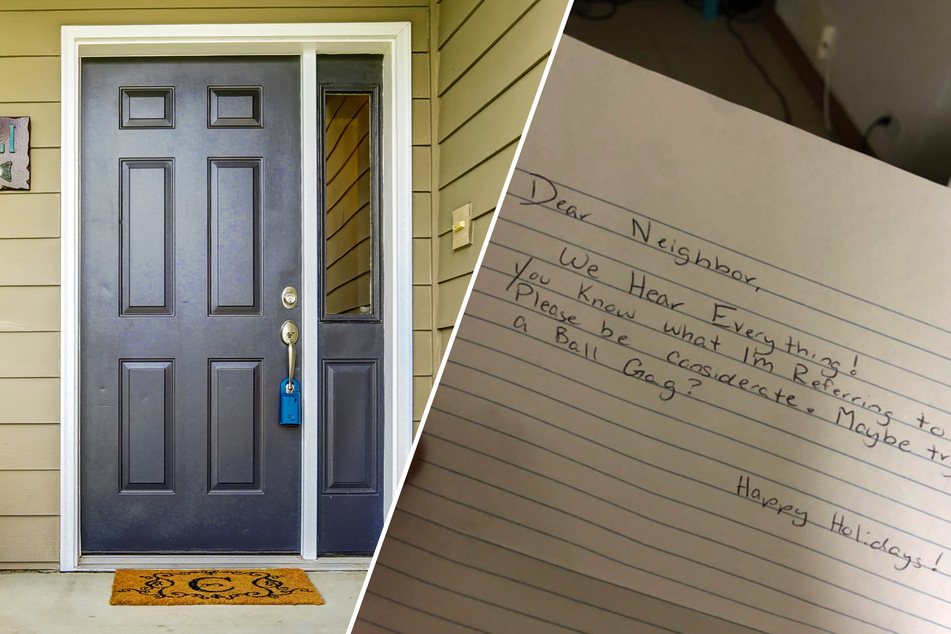 C
Dear Neighbor,
We Hear Everything!
You Know what I'm Referring to
Please be considerate. Maybe
a Ball Gag?
Happy Holidays!